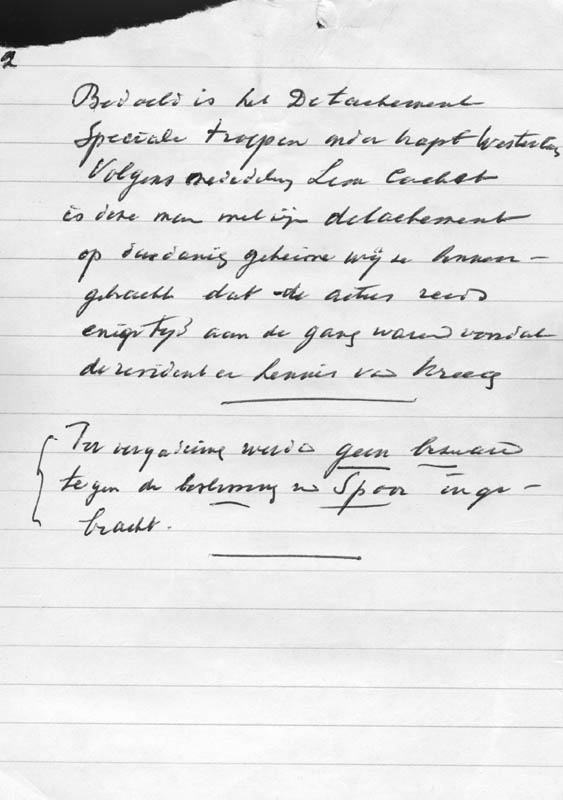 2
Bedoeld is het Detachement
Speciale troepen onder kapt Westerling
Volgens mededeling Lion Cachet
is deze man met zijn detachement
op dusdanig geheime wijze binnen-
gebracht dat de acties reeds
enige tijd aan de gang waren voordat
de resident er kennis van kreeg
Ter vergadering werden geen bezwaren
tegen de beslissing van Spoor inge-
bracht.